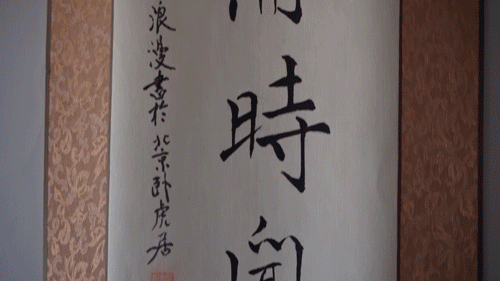 時
浪漫書於北京卧虎居